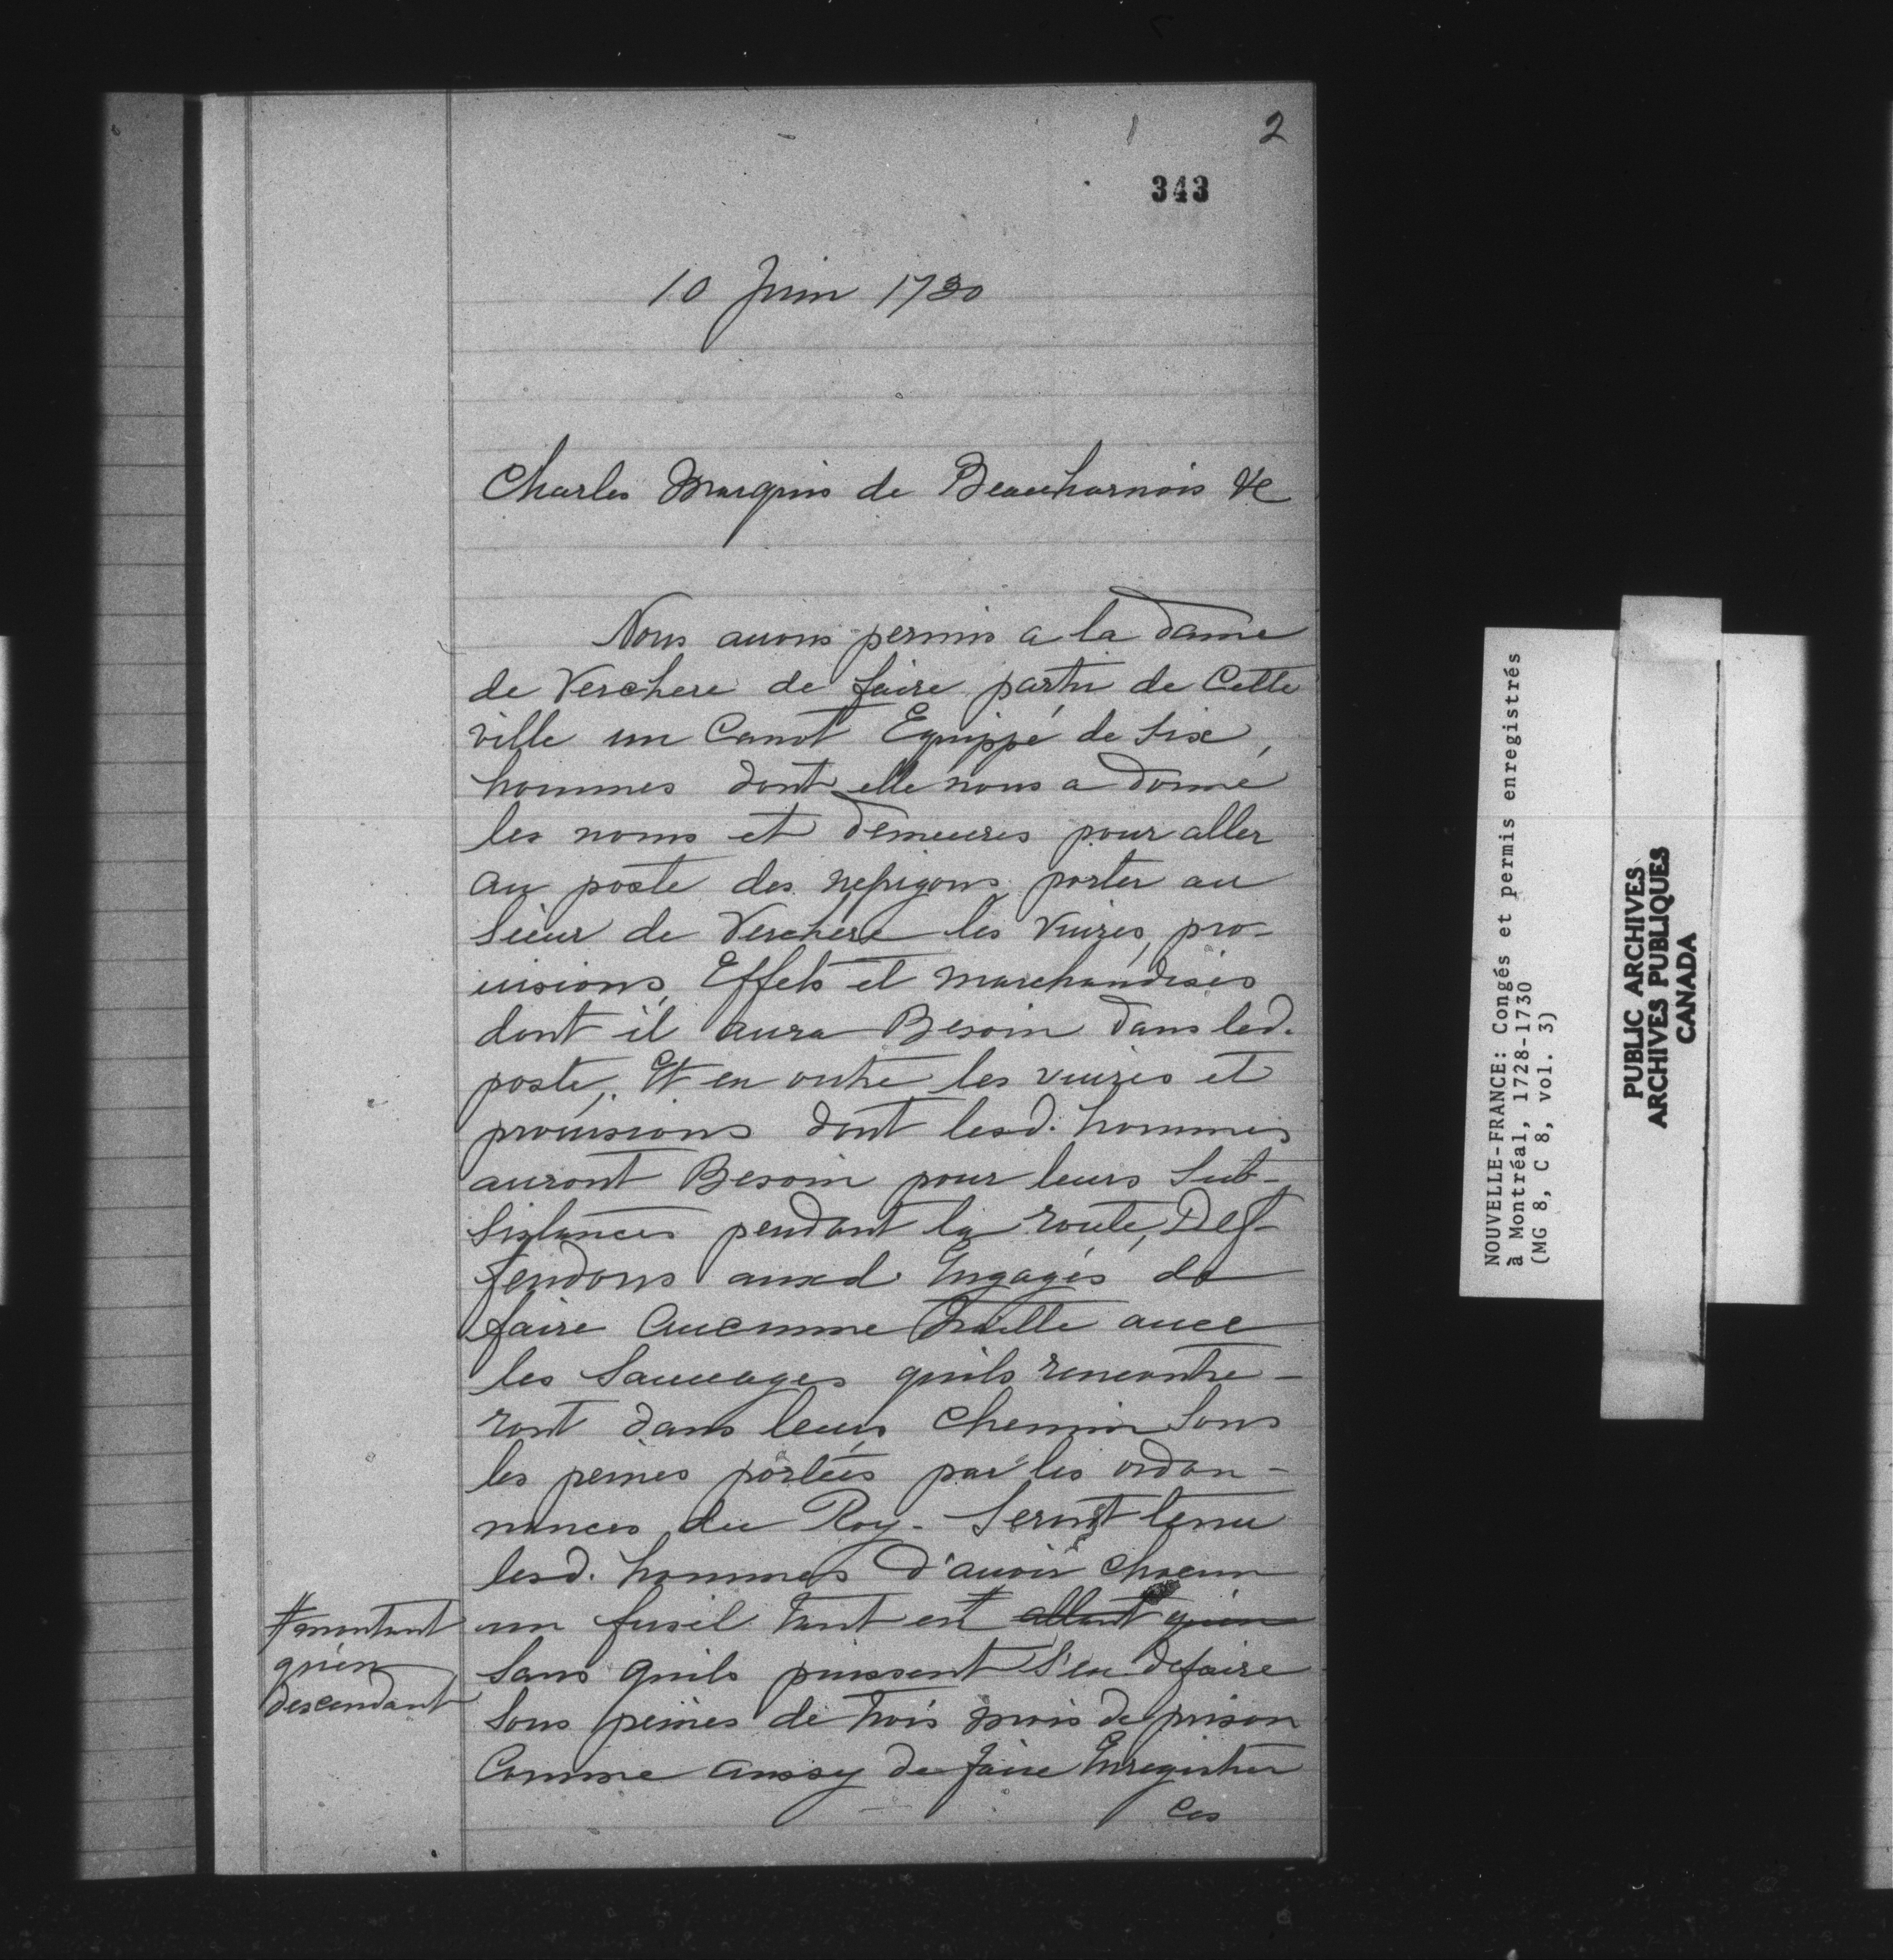 2
343
10 Juin 1730
Charles Marquis de Beauharnois &c
Nous auons permis a la Dame
de Verchere de faire partir de Cette
ville un Canot Equippé de Six
hommes dont elle nous a donné
les noms et demeures pour aller
au poste des nepigons porter au
Sieur de Verchere les viures, pro-
uisions, Effets et marchandises
dont il aura Besoin dans led.
poste, Et en outre les viures et
prouisions dont lesd. hommes
auront Besoin pour leurs Sub-
sistances pendant la route, Def-
fendons auxd. Engagés de
faire Aucunne Traitte auec
les Sauuages quils rencontre-
ront dans leurs chemin Sous
les peines portées par les ordon-
nances du Roy. Seront tenu
lesd. hommes d'auoir chacun
un fusil tant en # allant qu'en
#montant
qu'en
descendant
Sans quils puissent S'en defaire
Sous peines de trois mois de prison
Comme aussy de faire Enregistrer
Ces
NOUVELLE-FRANCE: Congés et permis enregistrés
à Montréal, 1728-1730
(MG 8, C 8, vol. 3)
PUBLIC ARCHIVES
ARCHIVES PUBLIQUES
CANADA